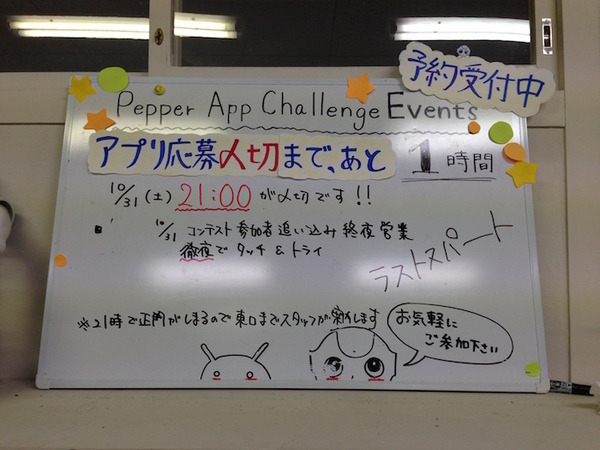 予約受付中
Pepper App Challenge Events
アプリ応募〆切まで、あと 1時間
10/31(土) 21:00が〆切です!!
10/31 コンテスト参加者追い込み終夜営業
徹夜でタッチ&トライ
ラストスパート
※21時で正門がしまるので東口までスタッフが案内します
お気軽に
ご参加下さい